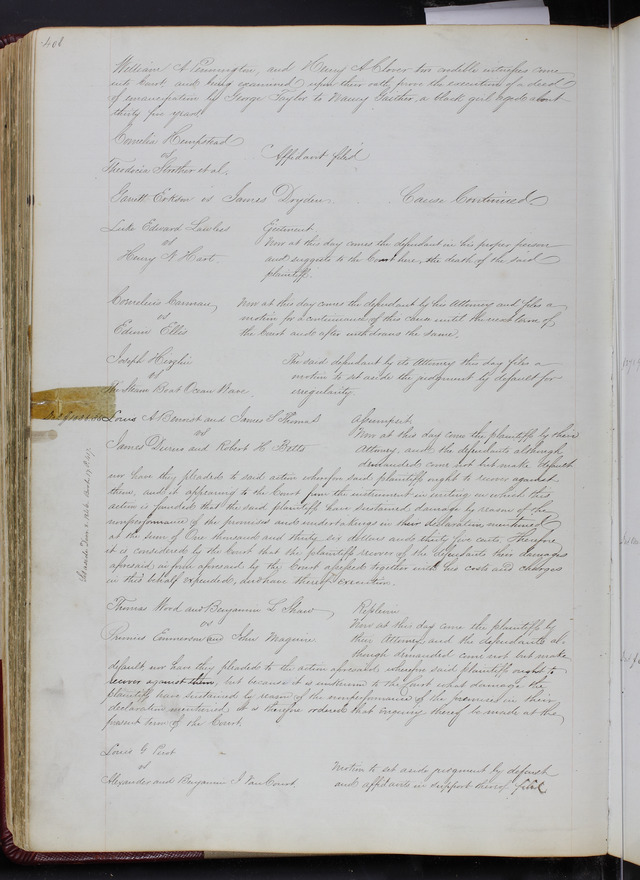 408
William A Pennington, and Henry A Clover two credible witnesses come
into Court, and being examined upon their oath, prove the execution of a deed
of emancipation by George Taylor to Nancy Gaither, a black girl aged about
thirty five years
Cornelia Hempstead
vs
Theodocia Strother et al.
Affidavit filed
Garritt Erkson vs James Dryden
Cause Continued
Luke Edward Lawless
vs
Henry N Hart
Ejectment
Now at this day comes the defendant in his proper person
and suggests to the Court here, the death of the said
plaintiff.
Cornelius Carman
vs
Edwin Ellis
Now at this day comes the defendant by his Attorney and files a
motion for a continuance of this cause until the next term of
the Court and after withdraws the same.
Joseph
vs
The Steam Boat Ocean Wave.
The said defendant by its Attorney this day files a
motion to set aside the judgment by default for
irregularity.
Louis A Benoist and James S Thomas
vs
James Durns and Robert H Betts
Assumpsit,
Now at this day come the plaintiffs by their
Attorney, and the defendants although
demanded come not but make default
nor have they pleaded to said action wherefore said plaintiffs ought to recover against
them, and it appearing to the Court from the instrument in writing on which this
action is founded that the said plaintiffs have sustained damage by reason of the
nonperformance of the promises and undertakings in their declaration mentioned
at the sum of One thousand and thirty six dollars and thirty five cents, Therefore
it is considered by the Court that the plaintiffs recover of the defendants their damages
aforesaid in form aforesaid by the Court assessed together with his costs and charges
in this behalf expended, and have thereof execution.
Thomas Wood and Benjamin L Shaw
vs
Primus Emmerson and John Magwire
Replevin
Now at this day come the plaintiffs by
their Attorney, and the defendants al-
though demanded come not but make
default, nor have they pleaded to the action aforesaid, wherefore said plaintiffs ought to
recover against them, but because it is unknown to the Court what damage the
plaintiffs have sustained by reason of the nonperformance of the promises in their
declaration mentioned, it is therefore ordered that enquiry thereof be made at the
present term of the Court.
Louis G Picot
vs
Alexander and Benjamin J Van Court.
Motion to set aside judgment by default
and affidavits in support thereof filed